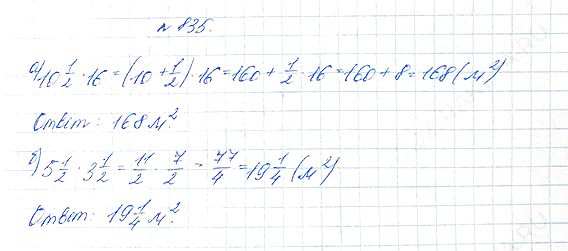 № 835.
а) 10 1/2 · 16 = (10 + 1/2) · 16 = 160 + 1/2 · 16 = 160 + 8 = 168 (м²)
Ответ: 168 м².
б) 5 1/2 · 3 1/2 = 11/2 · 7/2 = 77/4 = 19 1/4 (м²)
Ответ: 19 1/4 м².